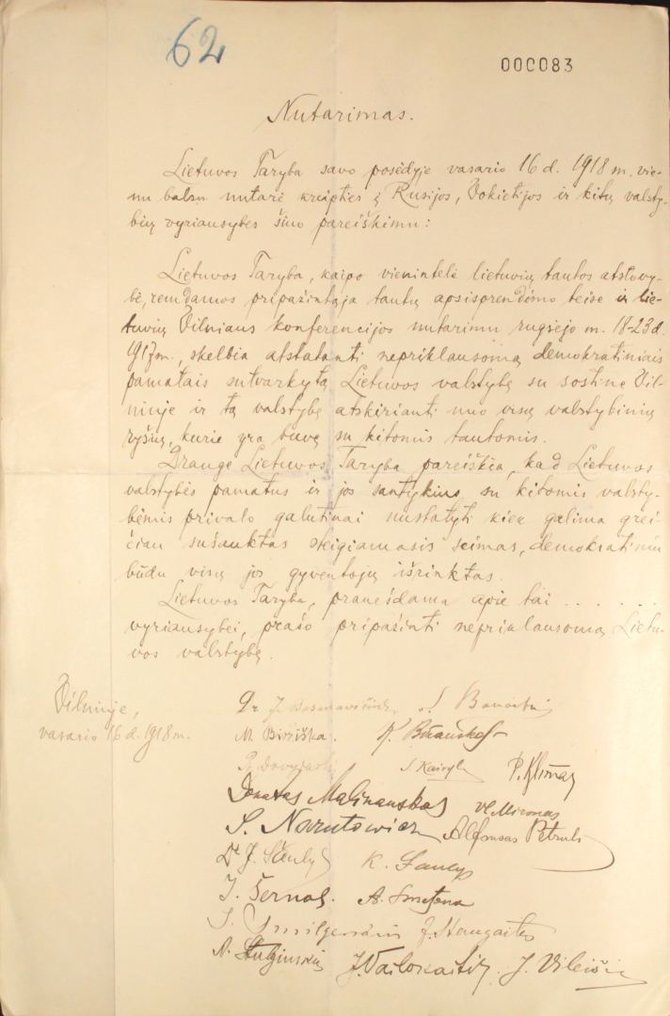 62
000083
Nutarimas.
Lietuvos Taryba savo posėdyje vasario 16 d. 1918 m. vie-
nu balsu nutarė kreipties į Rusijos, Vokietijos ir kitų valsty-
bių vyriausybes šiuo pareiškimu:
Lietuvos Taryba, kaipo vienintelė lietuvių tautos atstovy-
bė, remdamos pripažintąja tautų apsisprendimo teise ir lie-
tuvių Vilniaus konferencijos nutarimu rugsėjo m. 18-23 d.
1917 m., skelbia atstatanti nepriklausomą demokratiniais
pamatais sutvarkytą Lietuvos valstybę su sostine Vil-
niuje ir tą valstybę atskirianti nuo visų valstybinių
ryšių, kurie yra buvę su kitomis tautomis.
Drauge Lietuvos Taryba pareiškia, kad Lietuvos
valstybės pamatus ir jos santykius su kitomis valsty-
bėmis privalo galutinai nustatyti kiek galima grei-
čiau sušauktas steigiamasis seimas, demokratiniu
būdu visų jos gyventojų išrinktas.
Lietuvos Taryba, pranešdama apie tai . . . . . .
vyriausybei, prašo pripažinti nepriklausomą Lietu-
vos valstybę.
Vilniuje,
vasario 16 d. 1918 m.
Dr J. Basanavičius S. Banaitis
M. Biržiška. K. Bizauskas
P. Dovydaitis S. Kairys P. Klimas
Donatas Malinauskas Vl. Mironas
S. Narutowicz Alfonsas Petrulis
Dr J. Šaulys K. Šaulys
J. Šernas. A. Smetona
J. Smilgevičius J. Staugaitis
A. Stulginskis J. Vailokaitis J. Vileišis